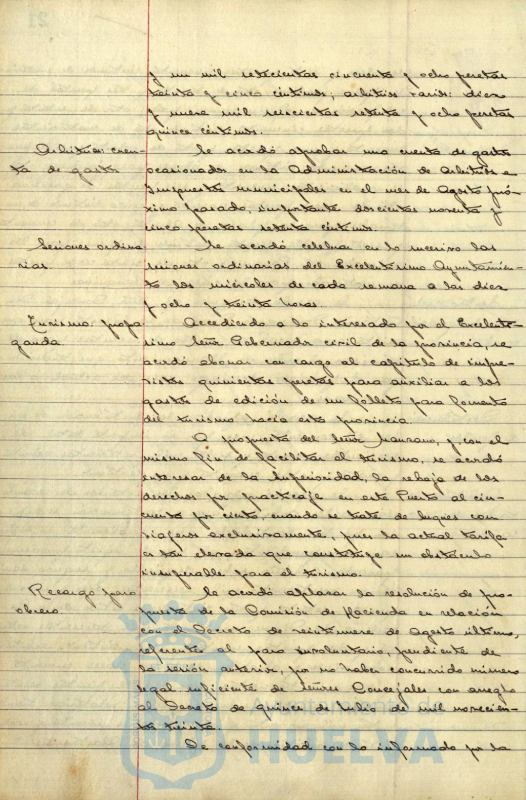 y un mil setecientas cincuenta y ocho pesetas
treinta y cinco céntimos; arbitrios varios: diez
y nueve mil seiscientas setenta y ocho pesetas
quince céntimos.
Arbitrios: cuen-
ta de gastos
Se acordó aprobar una cuenta de gastos
ocasionados en la Administración de Arbitrios e
Impuestos municipales en el mes de Agosto pró-
ximo pasado, importante doscientas noventa y
cinco pesetas setenta céntimos.
Sesiones ordina
rias.
Se acordó celebrar en lo sucesivo las
sesiones ordinarias del Excelentísimo Ayuntamien-
to los miércoles de cada semana a las diez
y ocho y treinta horas.
Turismo: propa
ganda
Accediendo a lo interesado por el Excelen-
tísimo Señor Gobernador civil de la provincia, se
acordó abonar con cargo al capítulo de impre-
vistos quinientas pesetas para auxiliar a los
gastos de edición de un folleto para fomento
del turismo hacia esta provincia.
A propuesta del Señor Manzano, y con el
mismo fin de facilitar el turismo, se acordó
interesar de la Superioridad, la rebaja de los
derechos por practicaje en este Puerto al cin-
cuenta por ciento, cuando se trate de buques con
viajeros exclusivamente, pues la actual tarifa
es tan elevada que constituye un obstáculo
insuperable para el turismo.
Recargo paro
obrero.
Se acordó aplazar la resolución de pro-
puesta de la Comisión de Hacienda en relación
con el Decreto de veintinueve de Agosto último,
referente al paro involuntario, pendiente de
la sesión anterior, por no haber concurrido número
legal suficiente de señores Concejales con arreglo
al Decreto de quince de Julio de mil novecien-
tos treinta.
De conformidad con lo informado por la
HUELVA